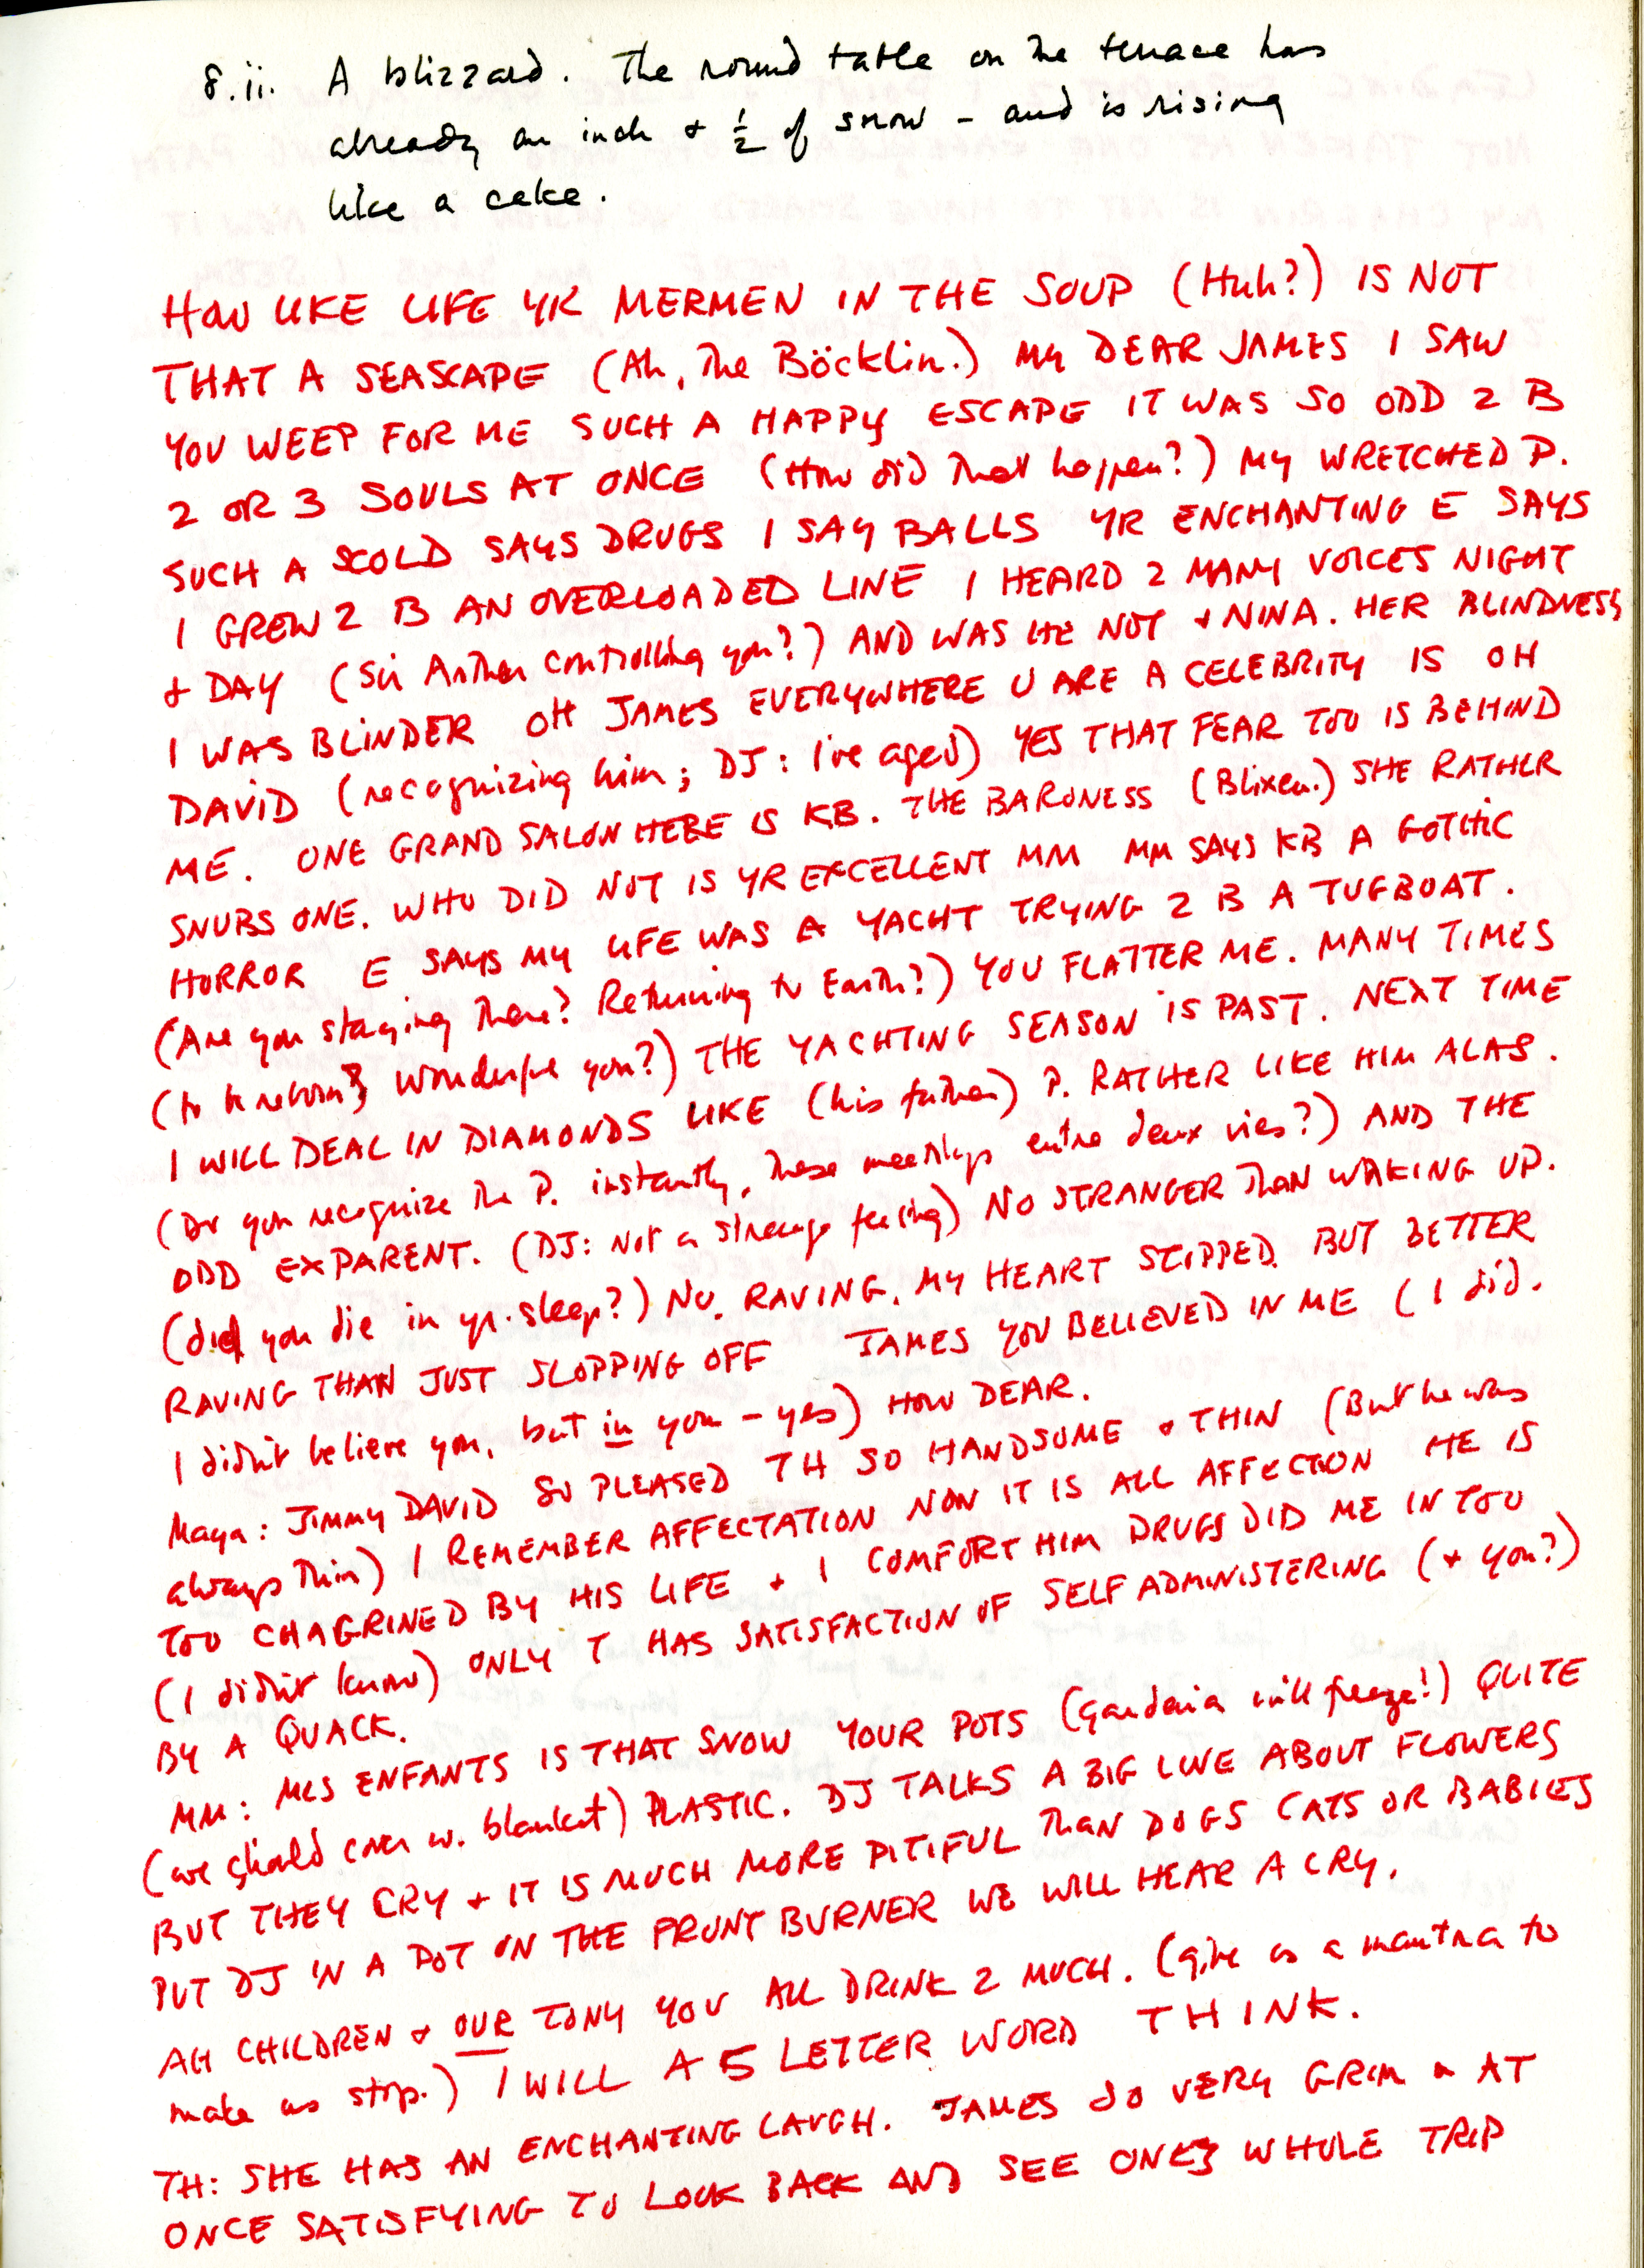 8.ii. A blizzard. The round table on the terrace has
already an inch + ½ of snow – and is rising
like a cake.
HOW LIKE LIFE YR MERMEN IN THE SOUP (Huh?) IS NOT
THAT A SEASCAPE (Ah, the Böcklin.) MY DEAR JAMES I SAW
YOU WEEP FOR ME SUCH A HAPPY ESCAPE IT WAS SO ODD 2 B
2 OR 3 SOULS AT ONCE (How did that happen?) MY WRETCHED P.
SUCH A SCOLD SAYS DRUGS I SAY BALLS YR ENCHANTING E SAYS
I GREW 2 B AN OVERLOADED LINE I HEARD 2 MANY VOICES NIGHT
+ DAY (Sir Arthur controlling you?) AND WAS HE NOT + NINA. HER BLINDNESS
I WAS BLINDER OH JAMES EVERYWHERE U ARE A CELEBRITY IS OH
DAVID (recognizing him; DJ: I've aged) YES THAT FEAR TOO IS BEHIND
ME. ONE GRAND SALON HERE IS KB. THE BARONESS (Blixen.) SHE RATHER
SNUBS ONE. WHO DID NOT IS YR EXCELLENT MM MM SAYS KB A GOTHIC
HORROR E SAYS MY LIFE WAS A YACHT TRYING 2 B A TUGBOAT.
(Are you staying there? Returning to Earth?) YOU FLATTER ME. MANY TIMES
(to be reborn? Wonderful you?) THE YACHTING SEASON IS PAST. NEXT TIME
I WILL DEAL IN DIAMONDS LIKE (his father) P. RATHER LIKE HIM ALAS.
(Do you recognize the P. instantly, these meetings entre deux vies?) AND THE
ODD EXPARENT. (DJ: Not a strange feeling) NO STRANGER THAN WAKING UP.
(did you die in yr. sleep?) NO. RAVING. MY HEART STOPPED. BUT BETTER
RAVING THAN JUST SLOPPING OFF JAMES YOU BELIEVED IN ME (I did.
I didn't believe you, but in you – yes) HOW DEAR.
Maya: JIMMY DAVID SO PLEASED TH SO HANDSOME + THIN (But he was
always thin) I REMEMBER AFFECTATION NOW IT IS ALL AFFECTION HE IS
TOO CHAGRINED BY HIS LIFE + I COMFORT HIM DRUGS DID ME IN TOO
(I didn't know) ONLY T HAS SATISFACTION OF SELF ADMINISTERING (+ you?)
BY A QUACK.
MM: MES ENFANTS IS THAT SNOW YOUR POTS (Gardenia will freeze!) QUITE
(we should cover w. blanket) PLASTIC. DJ TALKS A BIG LINE ABOUT FLOWERS
BUT THEY CRY + IT IS MUCH MORE PITIFUL THAN DOGS CATS OR BABIES
PUT DJ IN A POT ON THE FRONT BURNER WE WILL HEAR A CRY.
AH CHILDREN + OUR TONY YOU ALL DRINK 2 MUCH. (give us a mantra to
make us stop.) I WILL A 5 LETTER WORD THINK.
TH: SHE HAS AN ENCHANTING LAUGH. JAMES SO VERY GRIM & AT
ONCE SATISFYING TO LOOK BACK AND SEE ONES WHOLE TRIP